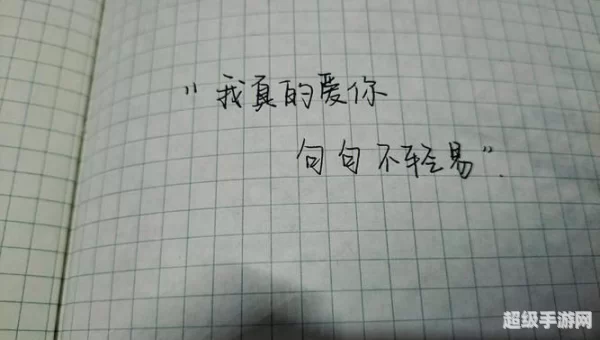 "我真的爱你
句句不轻易".
超级手游网